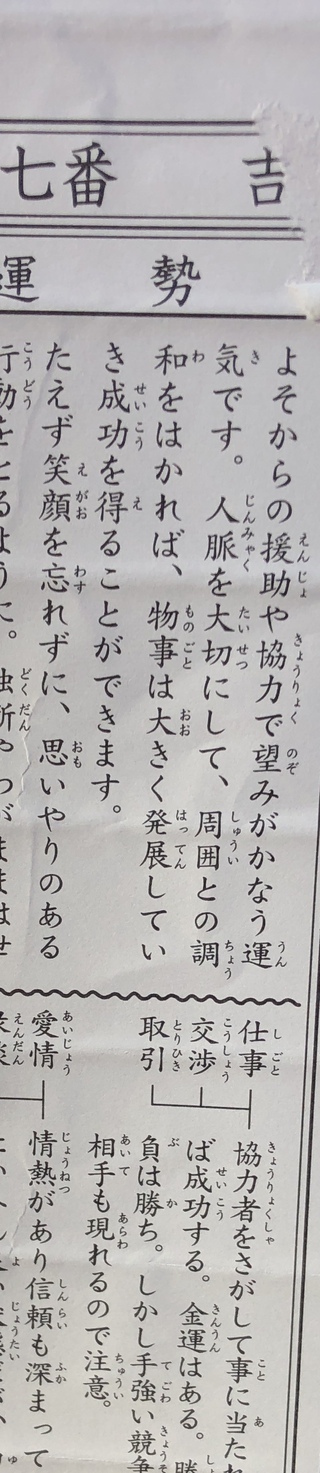 七番 吉
運勢
よそからの援助や協力で望みがかなう運
気です。人脈を大切にして、周囲との調
和をはかれば、物事は大きく発展してい
き成功を得ることができます。
たえず笑顔を忘れずに、思いやりのある
行動をとるように。独断や
仕事
交渉
取引
協力者をさがして事に当たれ
ば成功する。金運はある。勝
負は勝ち。しかし手強い競争
相手も現れるので注意。
愛情
情熱があり信頼も深まって